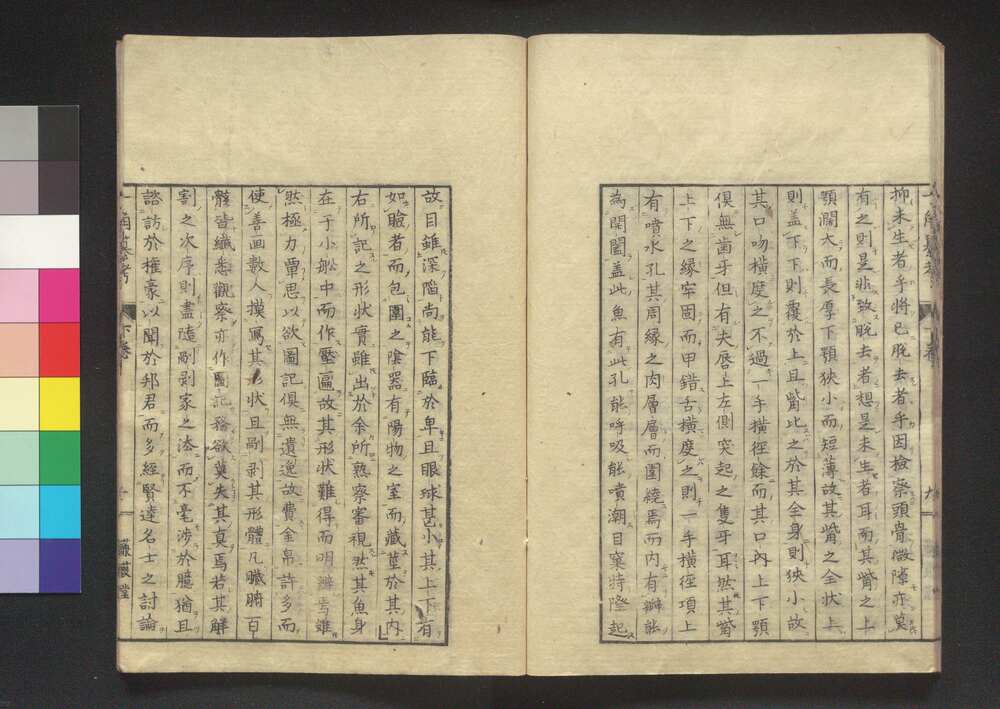 抑未生者乎將已脫去者乎因檢察頭骨微隙亦莫
有之則是非致脫去者想是未生者耳而其觜之上
顎濶大而長厚下顎狹小而短薄故其觜之全狀上
則盖下下則覆於上且觜比之於其全身則狹小故
其口吻橫度之不過一手橫徑餘而其口內上下顎
俱無齒牙但有夫唇上左側突起之隻牙耳然其觜
上下之縁牢固而甲錯舌橫度之則一手橫徑項上
有噴水孔其周縁之肉層層而圍繞焉而內有瓣能
為開闔盖此魚有此孔能呼吸能噴潮目窠特隆起
故目雖深陷尚能下臨於卑且眼球甚小其上下有
如瞼者而包圍之陰器有陽物之室而藏莖於其內
右所記之形狀實雖出於余所熟察審視然其魚身
在于小舩中而作壓匾故其形狀難得而明辨焉雖
然極力覃思以欲圖記俱無遺逸故費金帛許多而
使善画數人摸寫其形狀且剮剥其形體凡臟腑百
骸皆纎悉觀察亦作圖記務欲莫失其真焉若其解
割之次序則盡隨剮剥家之法而不毫涉於臆猶且
諮訪於權豪以聞於邦君而多經賢達名士之討論
下卷
九
蒹葭堂